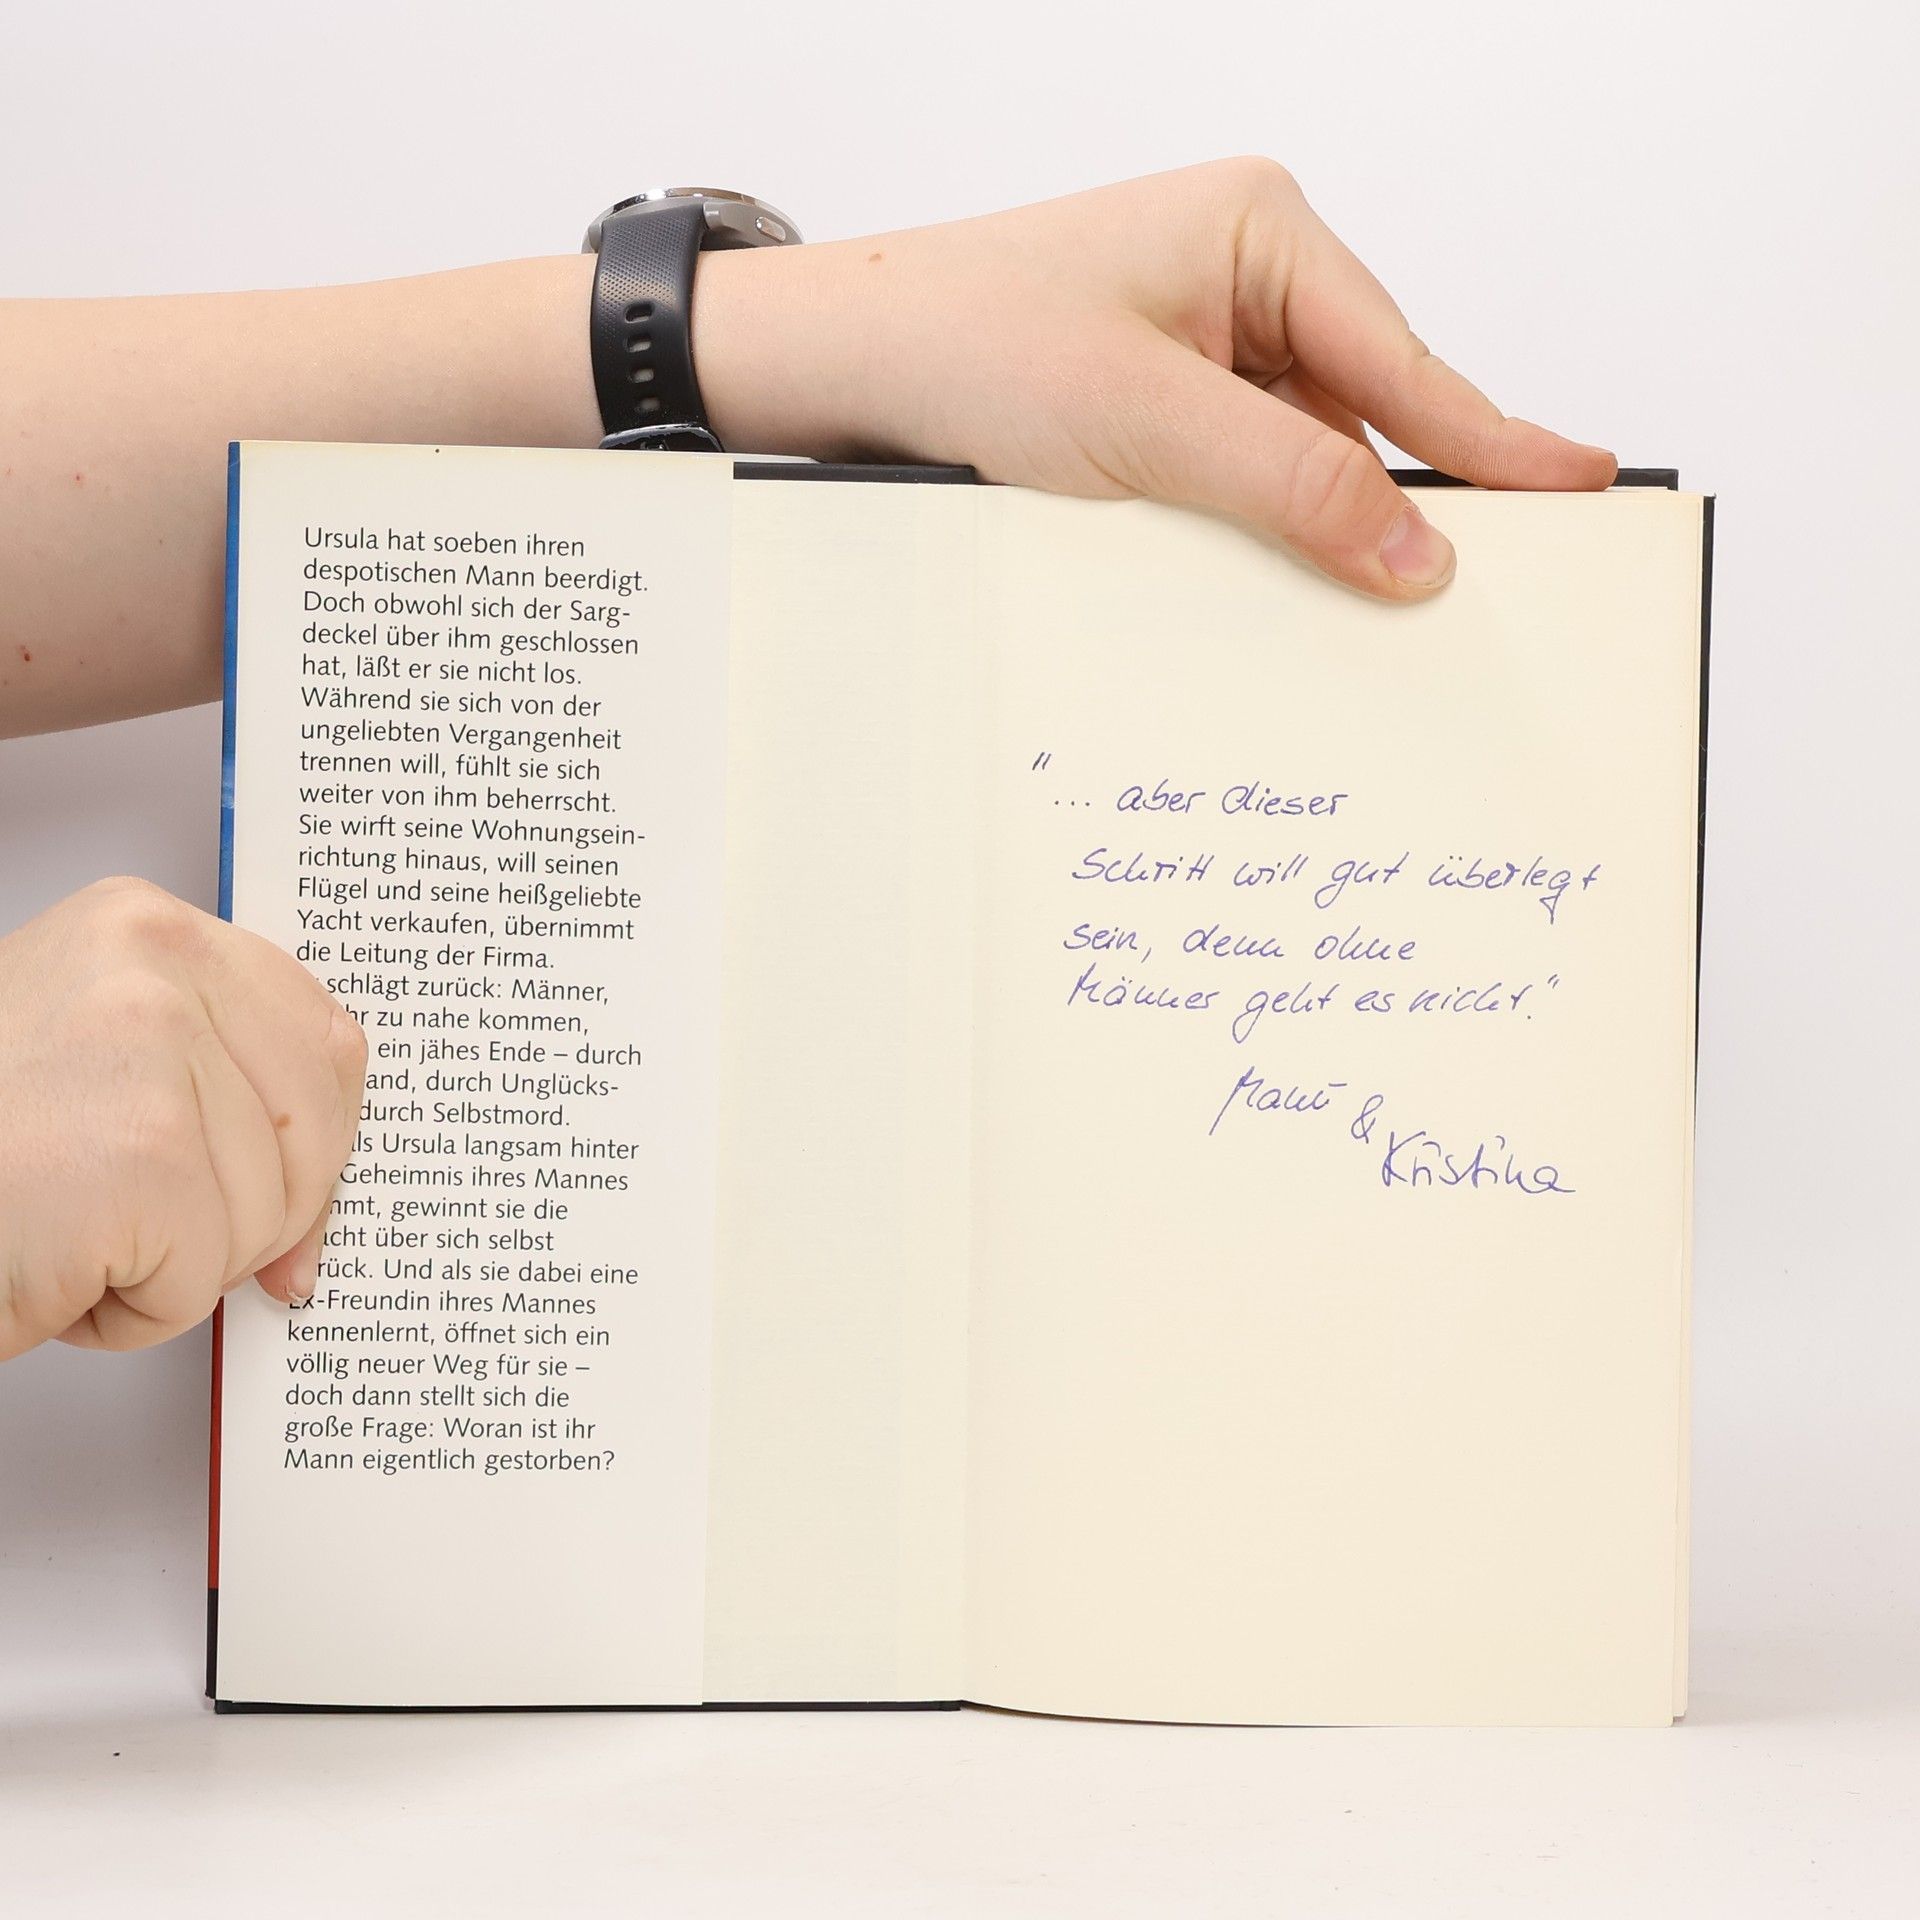 Ursula hat soeben ihren
despotischen Mann beerdigt.
Doch obwohl sich der Sarg-
deckel über ihm geschlossen
hat, läßt er sie nicht los.
Während sie sich von der
ungeliebten Vergangenheit
trennen will, fühlt sie sich
weiter von ihm beherrscht.
Sie wirft seine Wohnungsein-
richtung hinaus, will seinen
Flügel und seine heißgeliebte
Yacht verkaufen, übernimmt
die Leitung der Firma.
schlägt zurück: Männer,
zu nahe kommen,
ein jähes Ende – durch
durch Unglücks-
durch Selbstmord.
Ursula langsam hinter
Geheimnis ihres Mannes
gewinnt sie die
über sich selbst
Und als sie dabei eine
Ex-Freundin ihres Mannes
kennenlernt, öffnet sich ein
völlig neuer Weg für sie –
doch dann stellt sich die
große Frage: Woran ist ihr
Mann eigentlich gestorben?
"
... aber dieser
Schritt will gut überlegt
sein, denn ohne
Männer geht es nicht."
&
Kristina